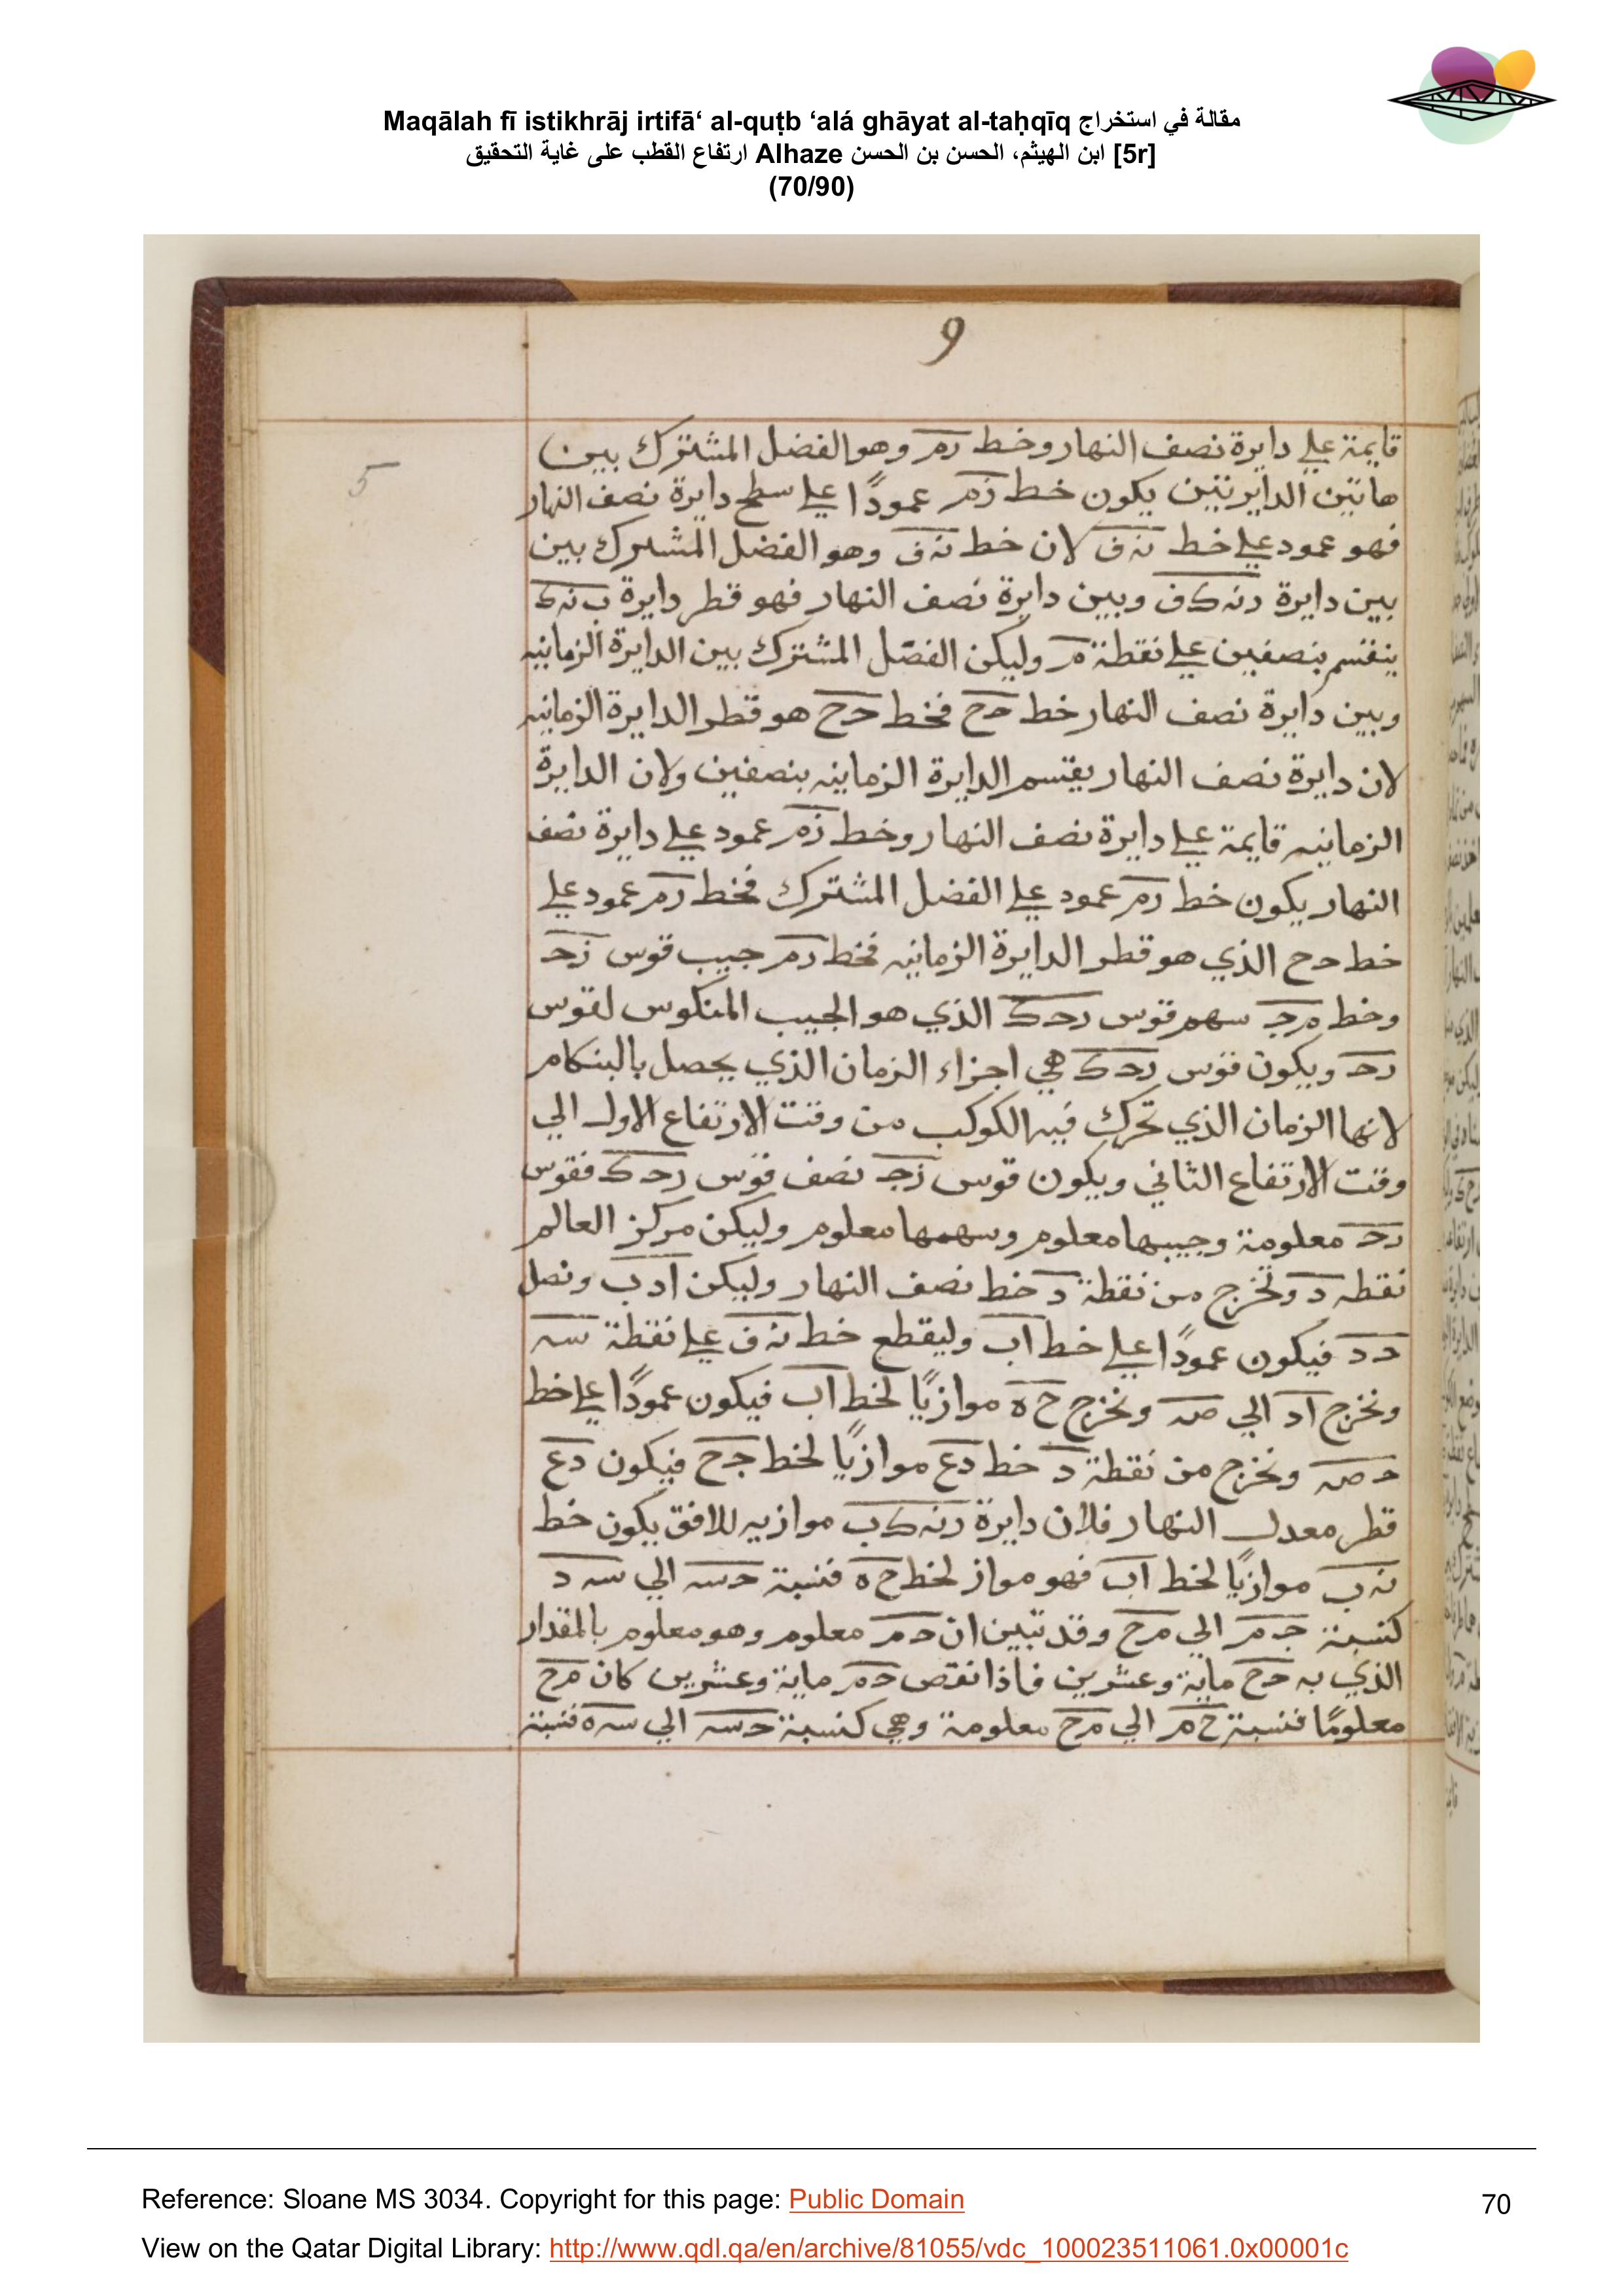 Maqālah fī istikhrāj irtifā‘ al-quṭb ‘alá ghāyat al-taḥqīq مقالة في استخراج
ارتفاع القطب على غاية التحقيق Alhaze ابن الهيثم، الحسن بن الحسن [5r]
(70/90)
9
5
قايمة علي دايرة نصف النهار وخط رم وهو الفضل المشترك بين
هاتين الدايرتين يكون خط زم عمودًا علي سطح دايرة نصف النهار
فهو عمود علي خط نه ف لان خط نه ف وهو الفضل المشترك بين
بين دايرة رنه ك ف وبين دايرة نصف النهار فهو قطر دايرة ب نه ك
ينقسم بنصفين علي نقطة م وليكن الفضل المشترك بين الدايرة الزمانيه
وبين دايرة نصف النهار خط حح فخط حح هو قطر الدايرة الزمانيه
لان دايرة نصف النهار يقتسم الدايرة الزمانيه بنصفين ولان الدايرة
الزمانيه قايمة علي دايرة نصف النهار وخط زم عمود علي دايرة نصف
النهار يكون خط رم عمود علي الفضل المشترك فخط رم عمود علي
خط حح الذي هو قطر الدايرة الزمانيه فخط رم جيب قوس زح
وخط مج سهم قوس رحك الذي هو الجيب المنكوس لقوس
رح ويكون قوس رحك هي اجزاء الزمان الذي يحصل بالبنكام
لانها الزمان الذي تحرك فيه الكوكب من وقت الارتفاع الاول الي
وقت الارتفاع الثاني ويكون قوس زج نصف قوس رحك فقوس
رح معلومة وجيبها معلوم وسهمها معلوم وليكن مركز العالم
نقطه د وتخرج من نقطة د خط نصف النهار وليكن ادب ونصل
حد فيكون عمودًا علي خط اب وليقطع خط نه ف علي نقطة سه
ونخرج اد الي صه ونخرج ح ه موازيًا لخط اب فيكون عمودًا علي خط
ح صه ونخرج من نقطة د خط دع موازيًا لخط جح فيكون دع
قطر معدل النهار فلان دايرة رنه ك ب موازيه للافق يكون خط
نه ب موازيًا لخط اب فهو مواز لخط ح ه فنسبة حسه الي سه د
كنسبة جم الي مح وقد تبين ان حم معلوم وهو معلوم بالمقدار
الذي به حح ماية وعشرين فاذا نقص حم ماية وعشرين كان مح
معلومًا فنسبة ح م الي مح معلومة وهي كنسبة حسه الي سه ه فنسبة
Reference: Sloane MS 3034. Copyright for this page: Public Domain
70
View on the Qatar Digital Library: http://www.qdl.qa/en/archive/81055/vdc_100023511061.0x00001c